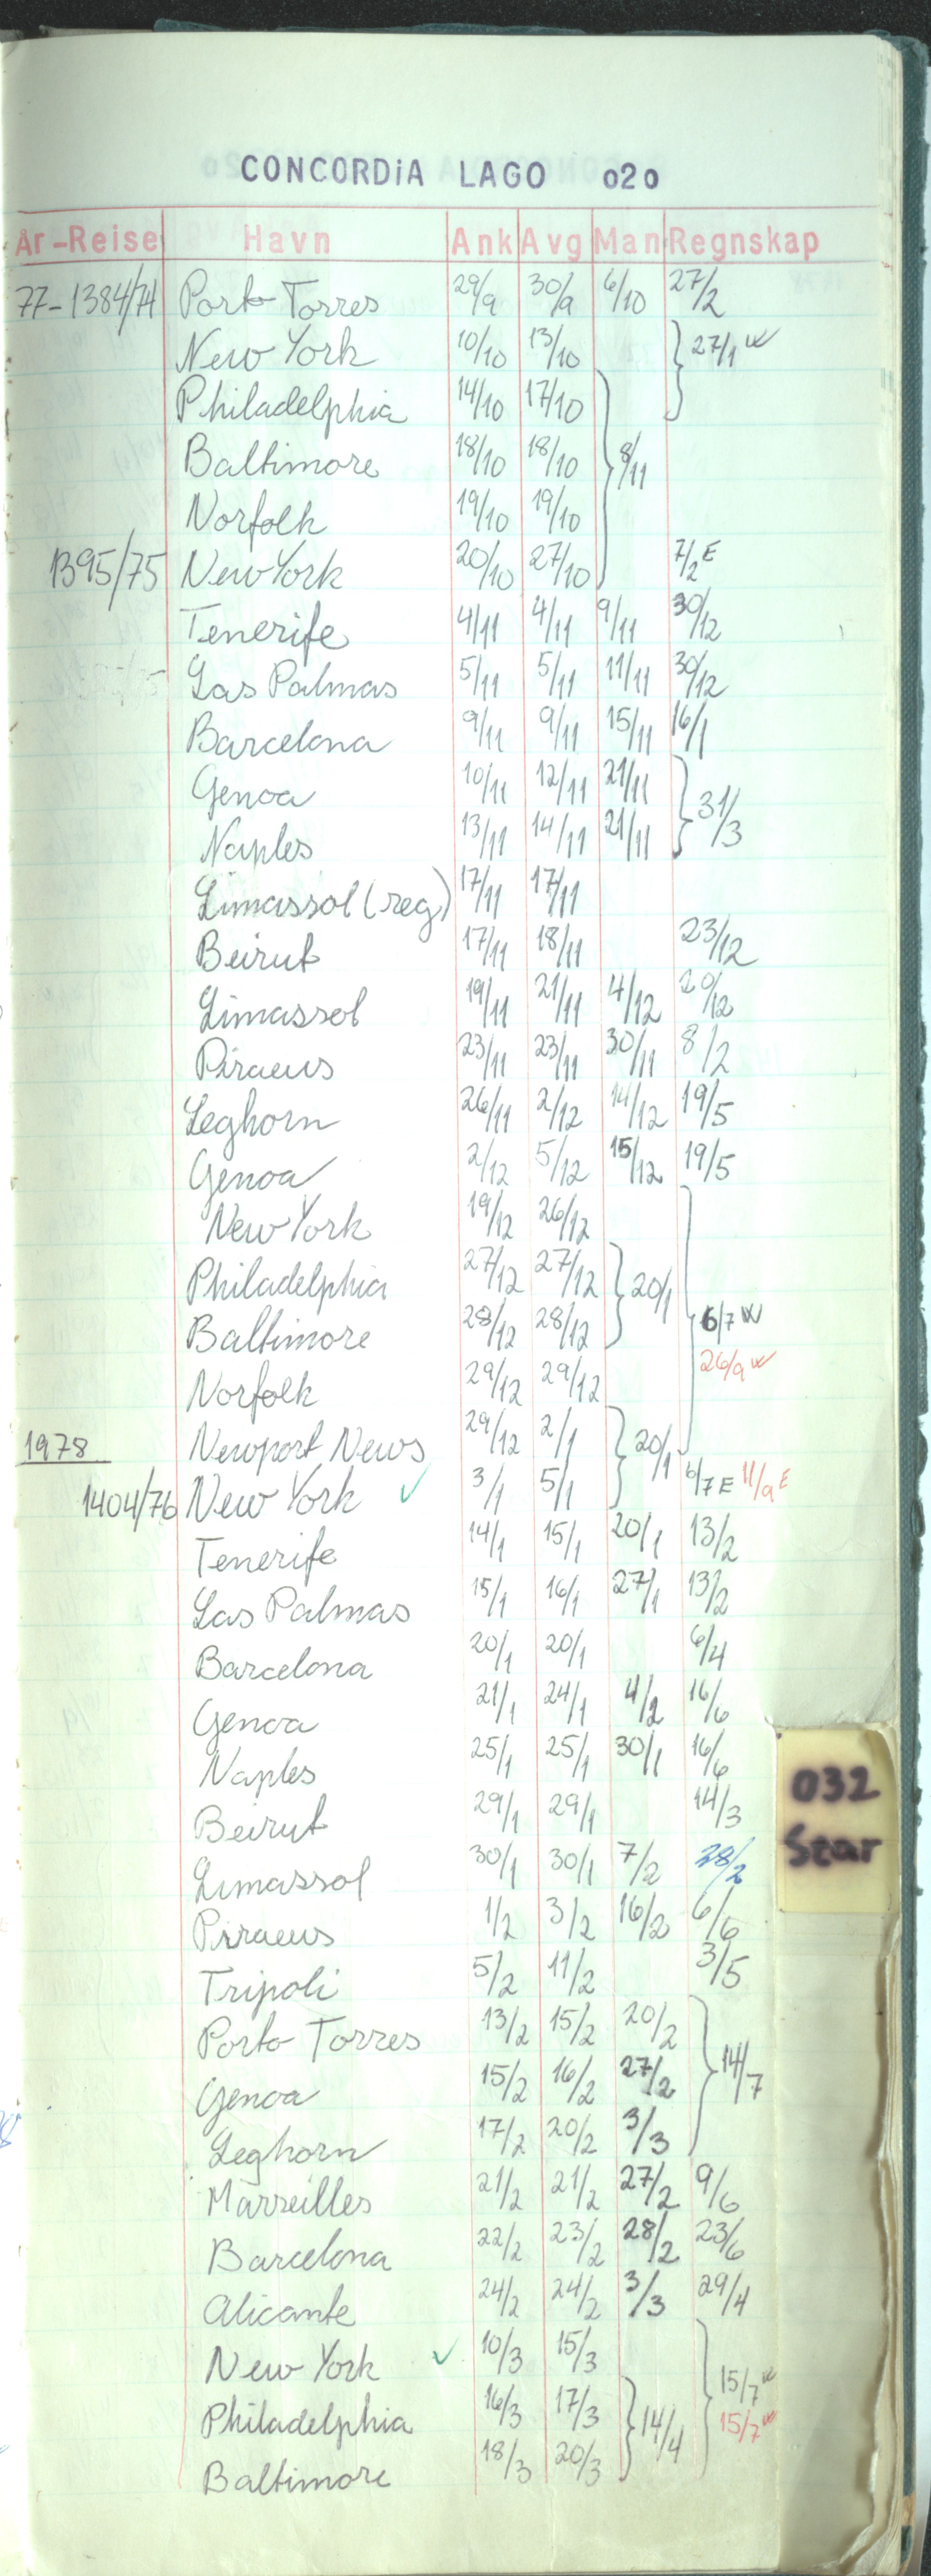 CONCORDiA LAGO 020
År-Reise Havn Ank Avg Man Regnskap
77-1384/74 Porto Torres 29/9 30/9 6/10 27/2
New York 10/10 13/10 27/1 W
Philadelphia 14/10 17/10
Baltimore 18/10 18/10 8/11
Norfolk 19/10 19/10
1395/75 New York 20/10 27/10 7/2 E
Tenerife 4/11 4/11 9/11 30/12
Las Palmas 5/11 5/11 11/11 30/12
Barcelona 9/11 9/11 15/11 16/1
Genoa 10/11 12/11 21/11 31/3
Naples 13/11 14/11 21/11
Limassol (reg) 17/11 17/11
Beirut 17/11 18/11 23/12
Limassol 19/11 21/11 4/12 20/12
Piraeus 23/11 23/11 30/11 8/2
Leghorn 26/11 2/12 14/12 19/5
Genoa 2/12 5/12 15/12 19/5
New York 19/12 26/12
Philadelphia 27/12 27/12 20/1
Baltimore 28/12 28/12 6/7 W
Norfolk 29/12 29/12 26/9 W
1978 Newport News 29/12 2/1 20/1
1404/76 New York ✓ 3/1 5/1 6/7 E 11/9 E
Tenerife 14/1 15/1 20/1 13/2
Las Palmas 15/1 16/1 27/1 13/2
Barcelona 20/1 20/1 6/4
Genoa 21/1 24/1 4/2 16/6
Naples 25/1 25/1 30/1 16/6
Beirut 29/1 29/1 14/3
Limassol 30/1 30/1 7/2 28/2
Piraeus 1/2 3/2 16/2 6/6
Tripoli 5/2 11/2 3/5
Porto Torres 13/2 15/2 20/2
Genoa 15/2 16/2 27/2 14/7
Leghorn 17/2 20/2 3/3
Marseilles 21/2 21/2 27/2 9/6
Barcelona 22/2 23/2 28/2 23/6
Alicante 24/2 24/2 3/3 29/4
New York ✓ 10/3 15/3 15/7 W
Philadelphia 16/3 17/3 14/4 15/7 W
Baltimore 18/3 20/3
032
Star